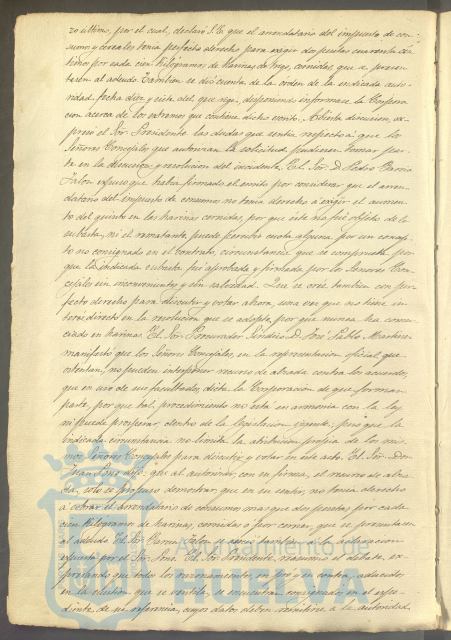 zo ultimo, por el cual, declaró S.E. que el arrendatario del impuesto de con-
sumos y cereales tenia perfecto derecho para exigir dos pesetas cuarenta cén-
timos por cada cien Kilógramos de Harinas de trigo, cernidas, que se presen-
tasen al adeudo. Tambien se dió cuenta de la orden de la indicada auto-
ridad, fecha diez y siete del que rige, disponiendo informase la Corpora-
cion acerca de los extremos que contiene dicho escrito. Abierta discusion, ex-
presó el Sor. Presidente las dudas que sentia respecto á que los
Señores Concejales que autorizan la solicitud, pudieran tomar par-
te en la discusion y resolucion del incidente. El Sor. D. Pedro Garcia
Falon expuso que habia firmado el escrito por considerar que el arren-
datario del impuesto de consumos no tenia derecho á exigir el aumen-
to del quinto en las harinas cernidas, por que éste no fué objeto de la
subasta, ni el rematante puede percibir cuota alguna por un concep-
to no consignado en el contrato, circunstancia que se comprueba por-
que la indicada subasta fué aprobada y firmada por los Señores Con-
cejales sin inconveniente y sin salvedad. Que se cree tambien con per-
fecto derecho para discutir y votar ahora, una vez que no tiene in-
terés directo en la resolucion que se adopte, por que nunca ha comer-
ciado en harinas. El Sor. Procurador Síndico D. José Pablo Martinez
manifestó que los Señores Concejales, en la representacion oficial que
ostentan, no pueden interponer recurso de alzada contra los acuerdos,
que en uso de sus facultades, dicte la Corporacion de que forman
parte, por que tal procedimiento no está en armonia con la ley
ni puede prosperar, dentro de la legislacion vigente; pero que la
indicada circunstancia no limita la atribucion propia de los mis-
mos Señores Concejales para discutir y votar en este acto. El Sor. Don
Juan Pons dijo: que al autorizar, con su firma, el recurso de alza-
da, solo se propuso demostrar que en su sentir, no tenia derecho
á cobrar el arrendatario de consumos mas que dos pesetas por cada
cien Kilógramos de harinas, cernidas ó por cerner, que se presentasen
al adeudo. El Sor. Garcia Falon se adhirió tambien á la declaracion
expuesta por el Sor. Pons. El Sor. Presidente, resumió el debate, ex-
presando que todos los razonamientos, en pró y en contra, aducidos
en la cuestion que se ventila, se encuentran consignados en el espe-
diente de su referencia, cuyos datos deben remitirse á la autoridad
Ayuntamiento de